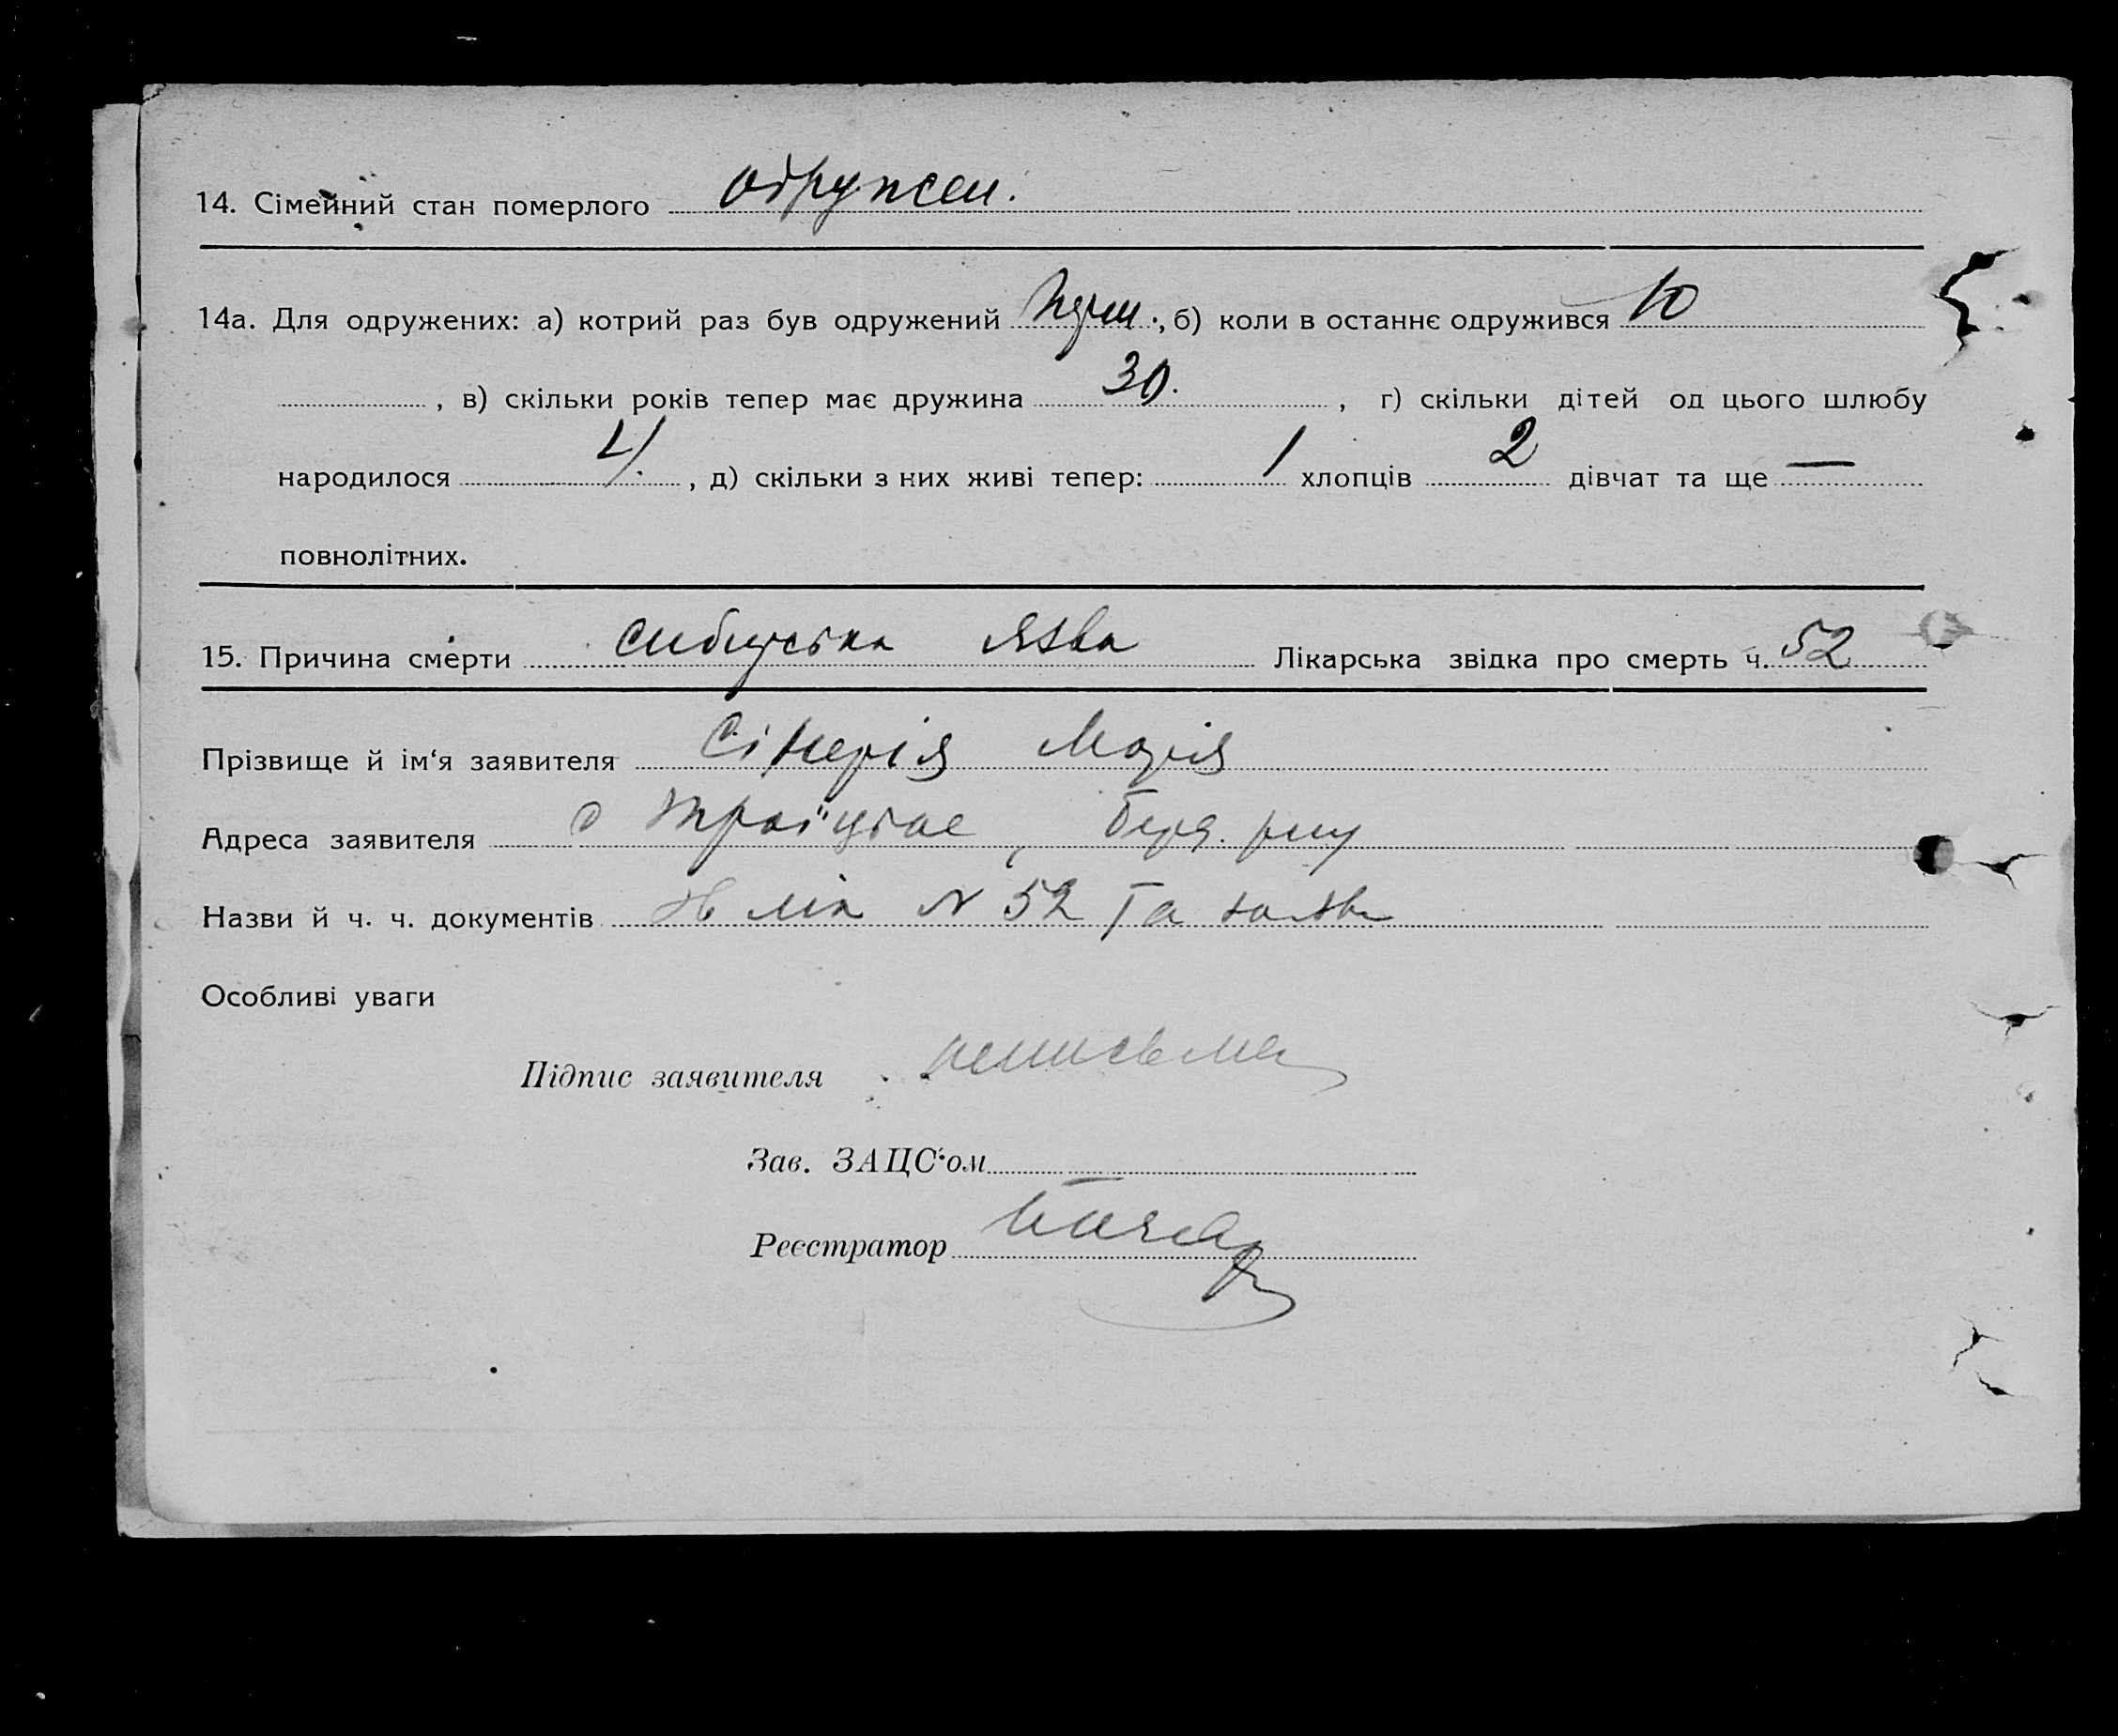 14. Сімейний стан померлого одружен.
14а. Для одружених: а) котрий раз був одружений перш., б) коли в останнє одружився 10
, в) скільки років тепер має дружина 30. , г) скільки дітей од цього шлюбу
народилося 4. , д) скільки з них живі тепер: 1 хлопців 2 дівчат та ще —
повнолітних.
15. Причина смерти сибирська язва Лікарська звідка про смерть ч. 52
Прізвище й ім‘я заявителя Марія
Адреса заявителя с Троїцьке, Берд. рну
Назви й ч. ч. документів лік N 52 та заява
Особливі уваги
Підпис заявителя неписьмен
Зав. ЗАЦС‘ом
Реєстратор